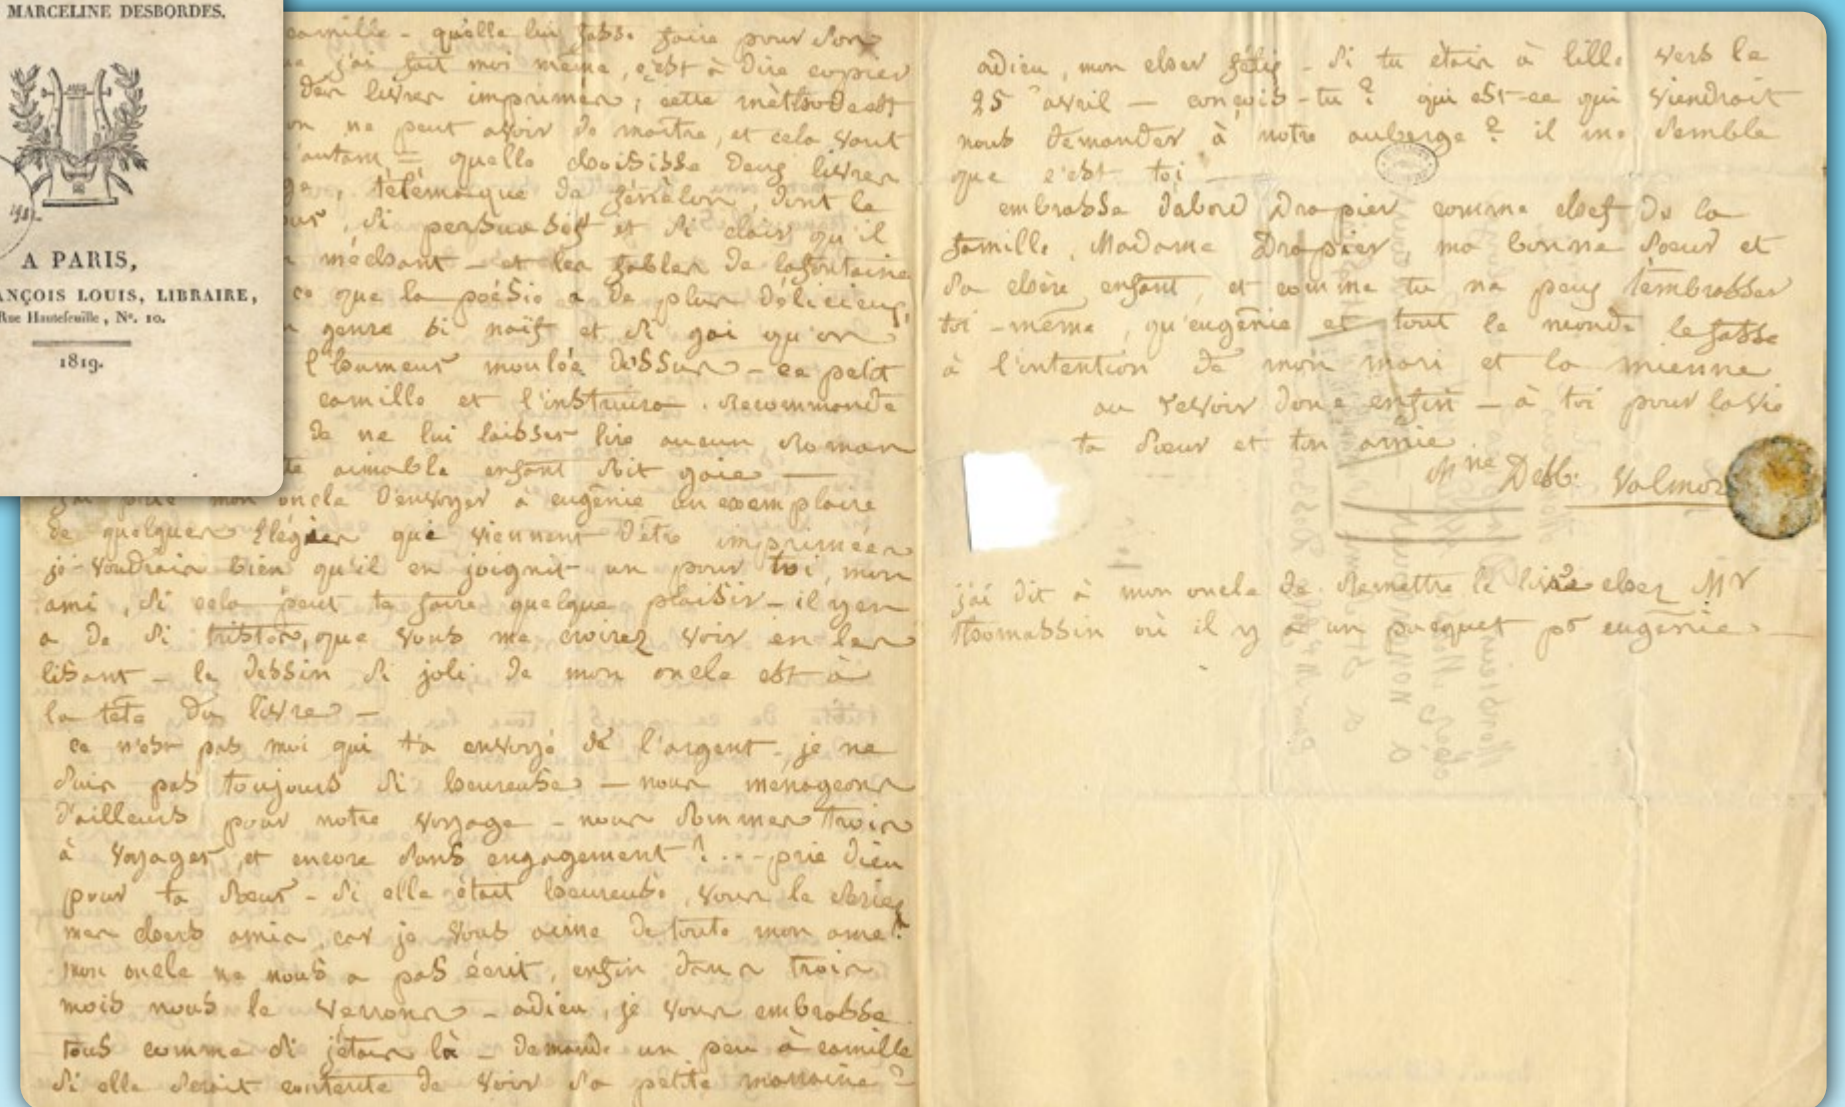 MARCELINE DESBORDES.
A PARIS,
ANÇOIS LOUIS, LIBRAIRE,
Rue Hautefeuille, N°. 10.
1819.
camille - qu'elle lui fasse faire pour son
j'ai fait moi même, c'est à dire copier
des livres imprimés, cette méthode est
on ne peut avoir de maître, et cela vaut
autant = quelle choisisse deux livres
télémaque de fénélon, dont le
si persuasif et si clair qu'il
méchant - et les fables de lafontaine
ce que la poésie a de plus délicieux,
genre si naïf et si gai qu'on
l'humeur moulée dessus - ce petit
camille et l'instruira. recommande
de ne lui laisser lire aucun roman
aimable enfant soit gaie -
mon oncle d'envoyer à eugénie un exemplaire
de quelques Elégies qui viennent d'être imprimées
je voudrais bien qu'il en joignit un pour toi, mon
ami, si cela peut te faire quelque plaisir - il y en
a de si tristes, que vous me croirez voir en les
lisant - le dessin si joli de mon oncle est à
la tête du livre -
ce n'est pas moi qui t'a envoyé de l'argent, je ne
suis pas toujours si heureuse - nous ménageons
d'ailleurs pour notre voyage - nous sommes trois
à voyager, et encore sans engagement ! ... prie dieu
pour ta soeur - si elle était heureuse, vous le seriez
mes chers amis, car je vous aime de toute mon ame !
mon oncle ne nous a pas écrit, enfin dans trois
mois nous le verrons - adieu, je vous embrasse
tous comme si j'étais là - demande un peu à camille
si elle serait contente de voir sa petite marraine ?
adieu, mon cher félix - si tu étais à lille vers le
25 avril - conçois-tu ? qui est-ce qui viendrait
nous demander à notre auberge ? il me semble
que c'est toi -
embrasse d'abord Drapier comme chef de la
famille, Madame Drapier, ma bonne soeur et
sa chère enfant, et comme tu ne peux t'embrasser
toi-même, qu'eugénie et tout le monde le fasse
à l'intention de mon mari et la mienne
au revoir donc enfin - à toi pour la vie
ta soeur et ton amie.
Mne Desb: Valmore
j'ai dit à mon oncle de remettre le livre chez Mr
Thomassin où il y a un pacquet pr eugénie -